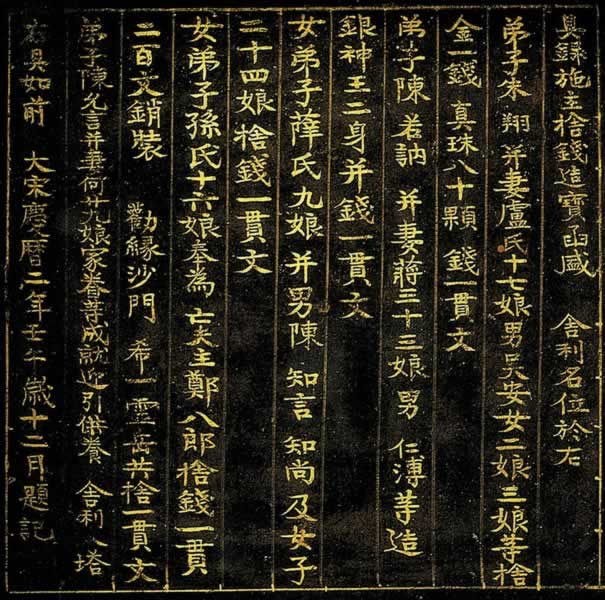 具錄施主捨錢造寶函盛　舍利名位於左
弟子朱翔并妻盧氏十七娘男吴安女二娘三娘等捨
金一錢　真珠八十顆　錢一貫文
弟子陳若訥　并妻蔣三十三娘　男　仁溥等造
銀神王二身并錢一貫文
女弟子薛氏九娘并男陳　知言　知尚及女子
二十四娘捨錢一貫文
女弟子孫氏十六娘奉為　亡夫主鄭八郎捨錢一貫
二百文銷裝　　勸緣沙門　希一靈岳共捨一貫文
弟子陳允言并妻何廿九娘家眷等成就迎引供養　舍利入塔
右具如前　大宋慶曆二年壬午歲十二月題記